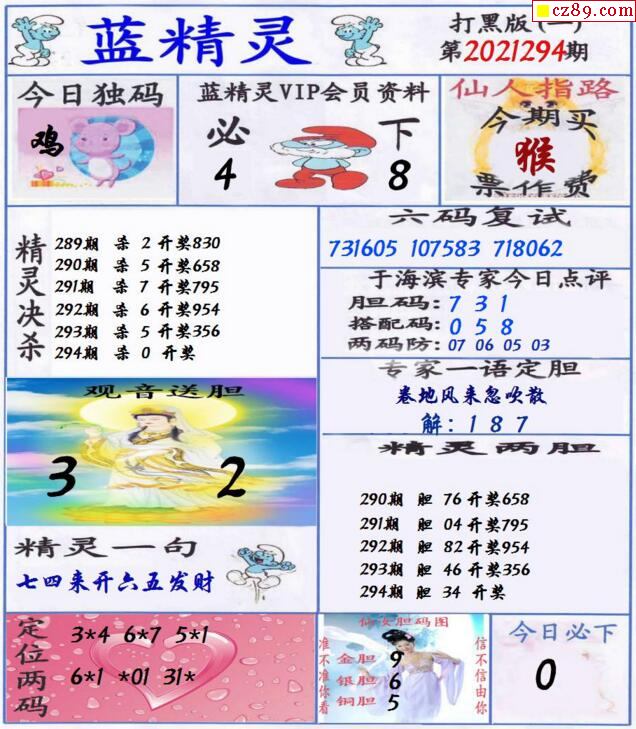 cz89.com
蓝精灵
打黑版(一)
第2021294期
今日独码
鸡
蓝精灵VIP会员资料
必 下
4 8
仙人指路
今期买
猴
票作费
精灵决杀
289期 杀 2 开奖830
290期 杀 5 开奖658
291期 杀 7 开奖795
292期 杀 6 开奖954
293期 杀 5 开奖356
294期 杀 0 开奖
六码复试
731605 107583 718062
于海滨专家今日点评
胆码: 7 3 1
搭配码: 0 5 8
两码防: 07 06 05 03
专家一语定胆
卷地风来忽吹散
解: 1 8 7
观音送胆
3 2
精灵两胆
290期 胆 76 开奖658
291期 胆 04 开奖795
292期 胆 82 开奖954
293期 胆 46 开奖356
294期 胆 34 开奖
精灵一句
七四来开六五发财
定位两码
3*4 6*7 5*1
6*1 *01 31*
仙女胆码图
准不准你看
金胆 9
银胆 6
铜胆 5
信不信由你
今日必下
0